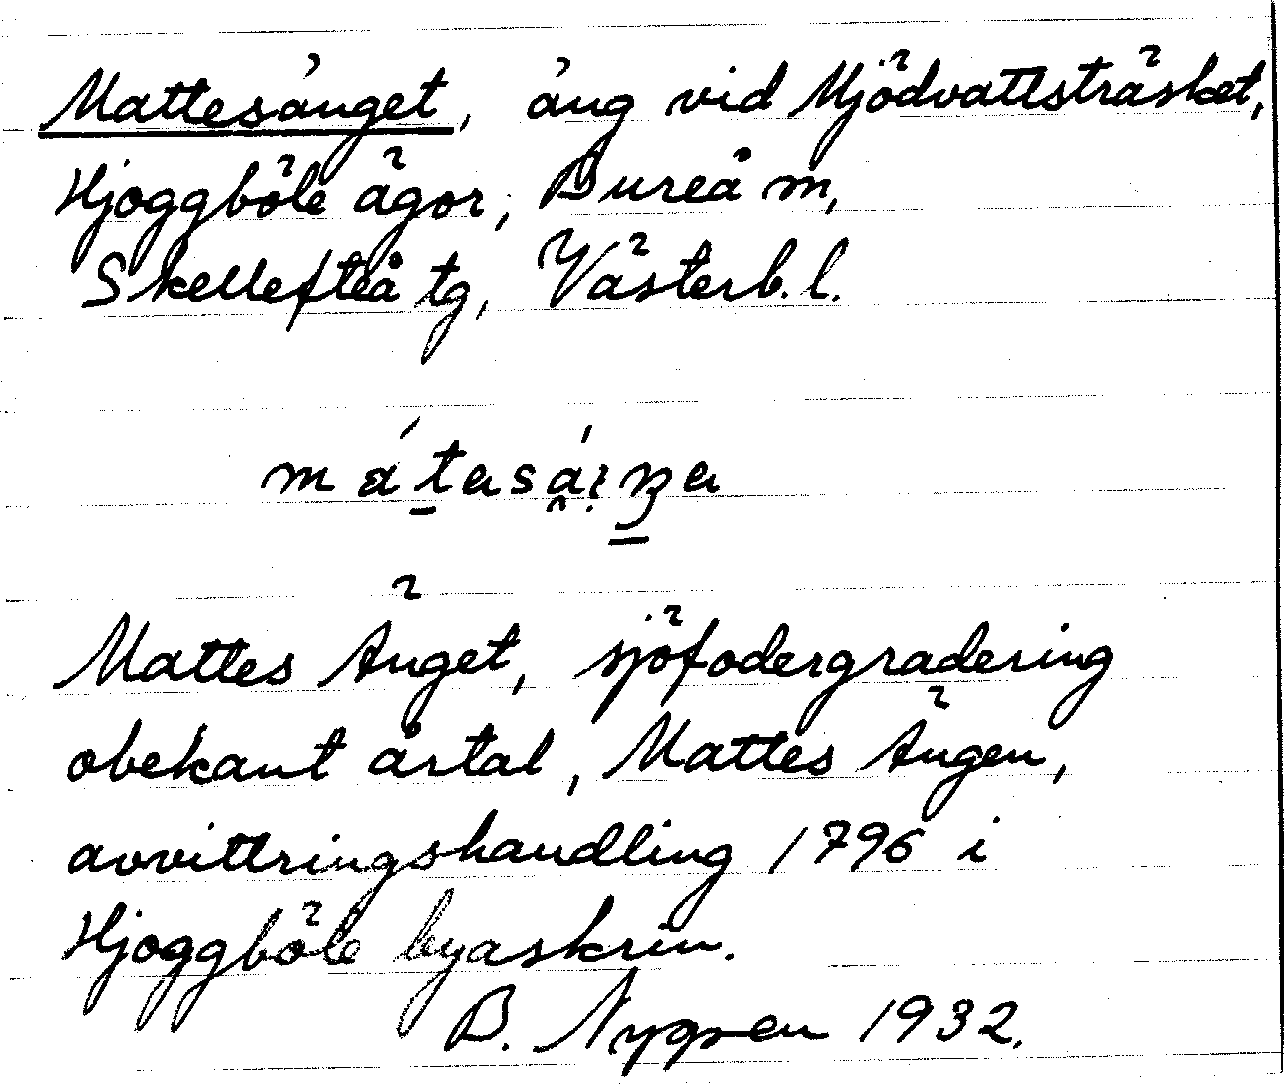 Mattesänget, äng vid Mjödvattsträsket,
Hjoggböle ägor, Bureå m,
Skellefteå tg, Västerb. l.
Mattes Änget, sjöfodergradering
obekant årtal, Mattes Ängen,
avvittringshandling 1796 i
Hjoggböle byaskrin.
B. Nygren 1932.